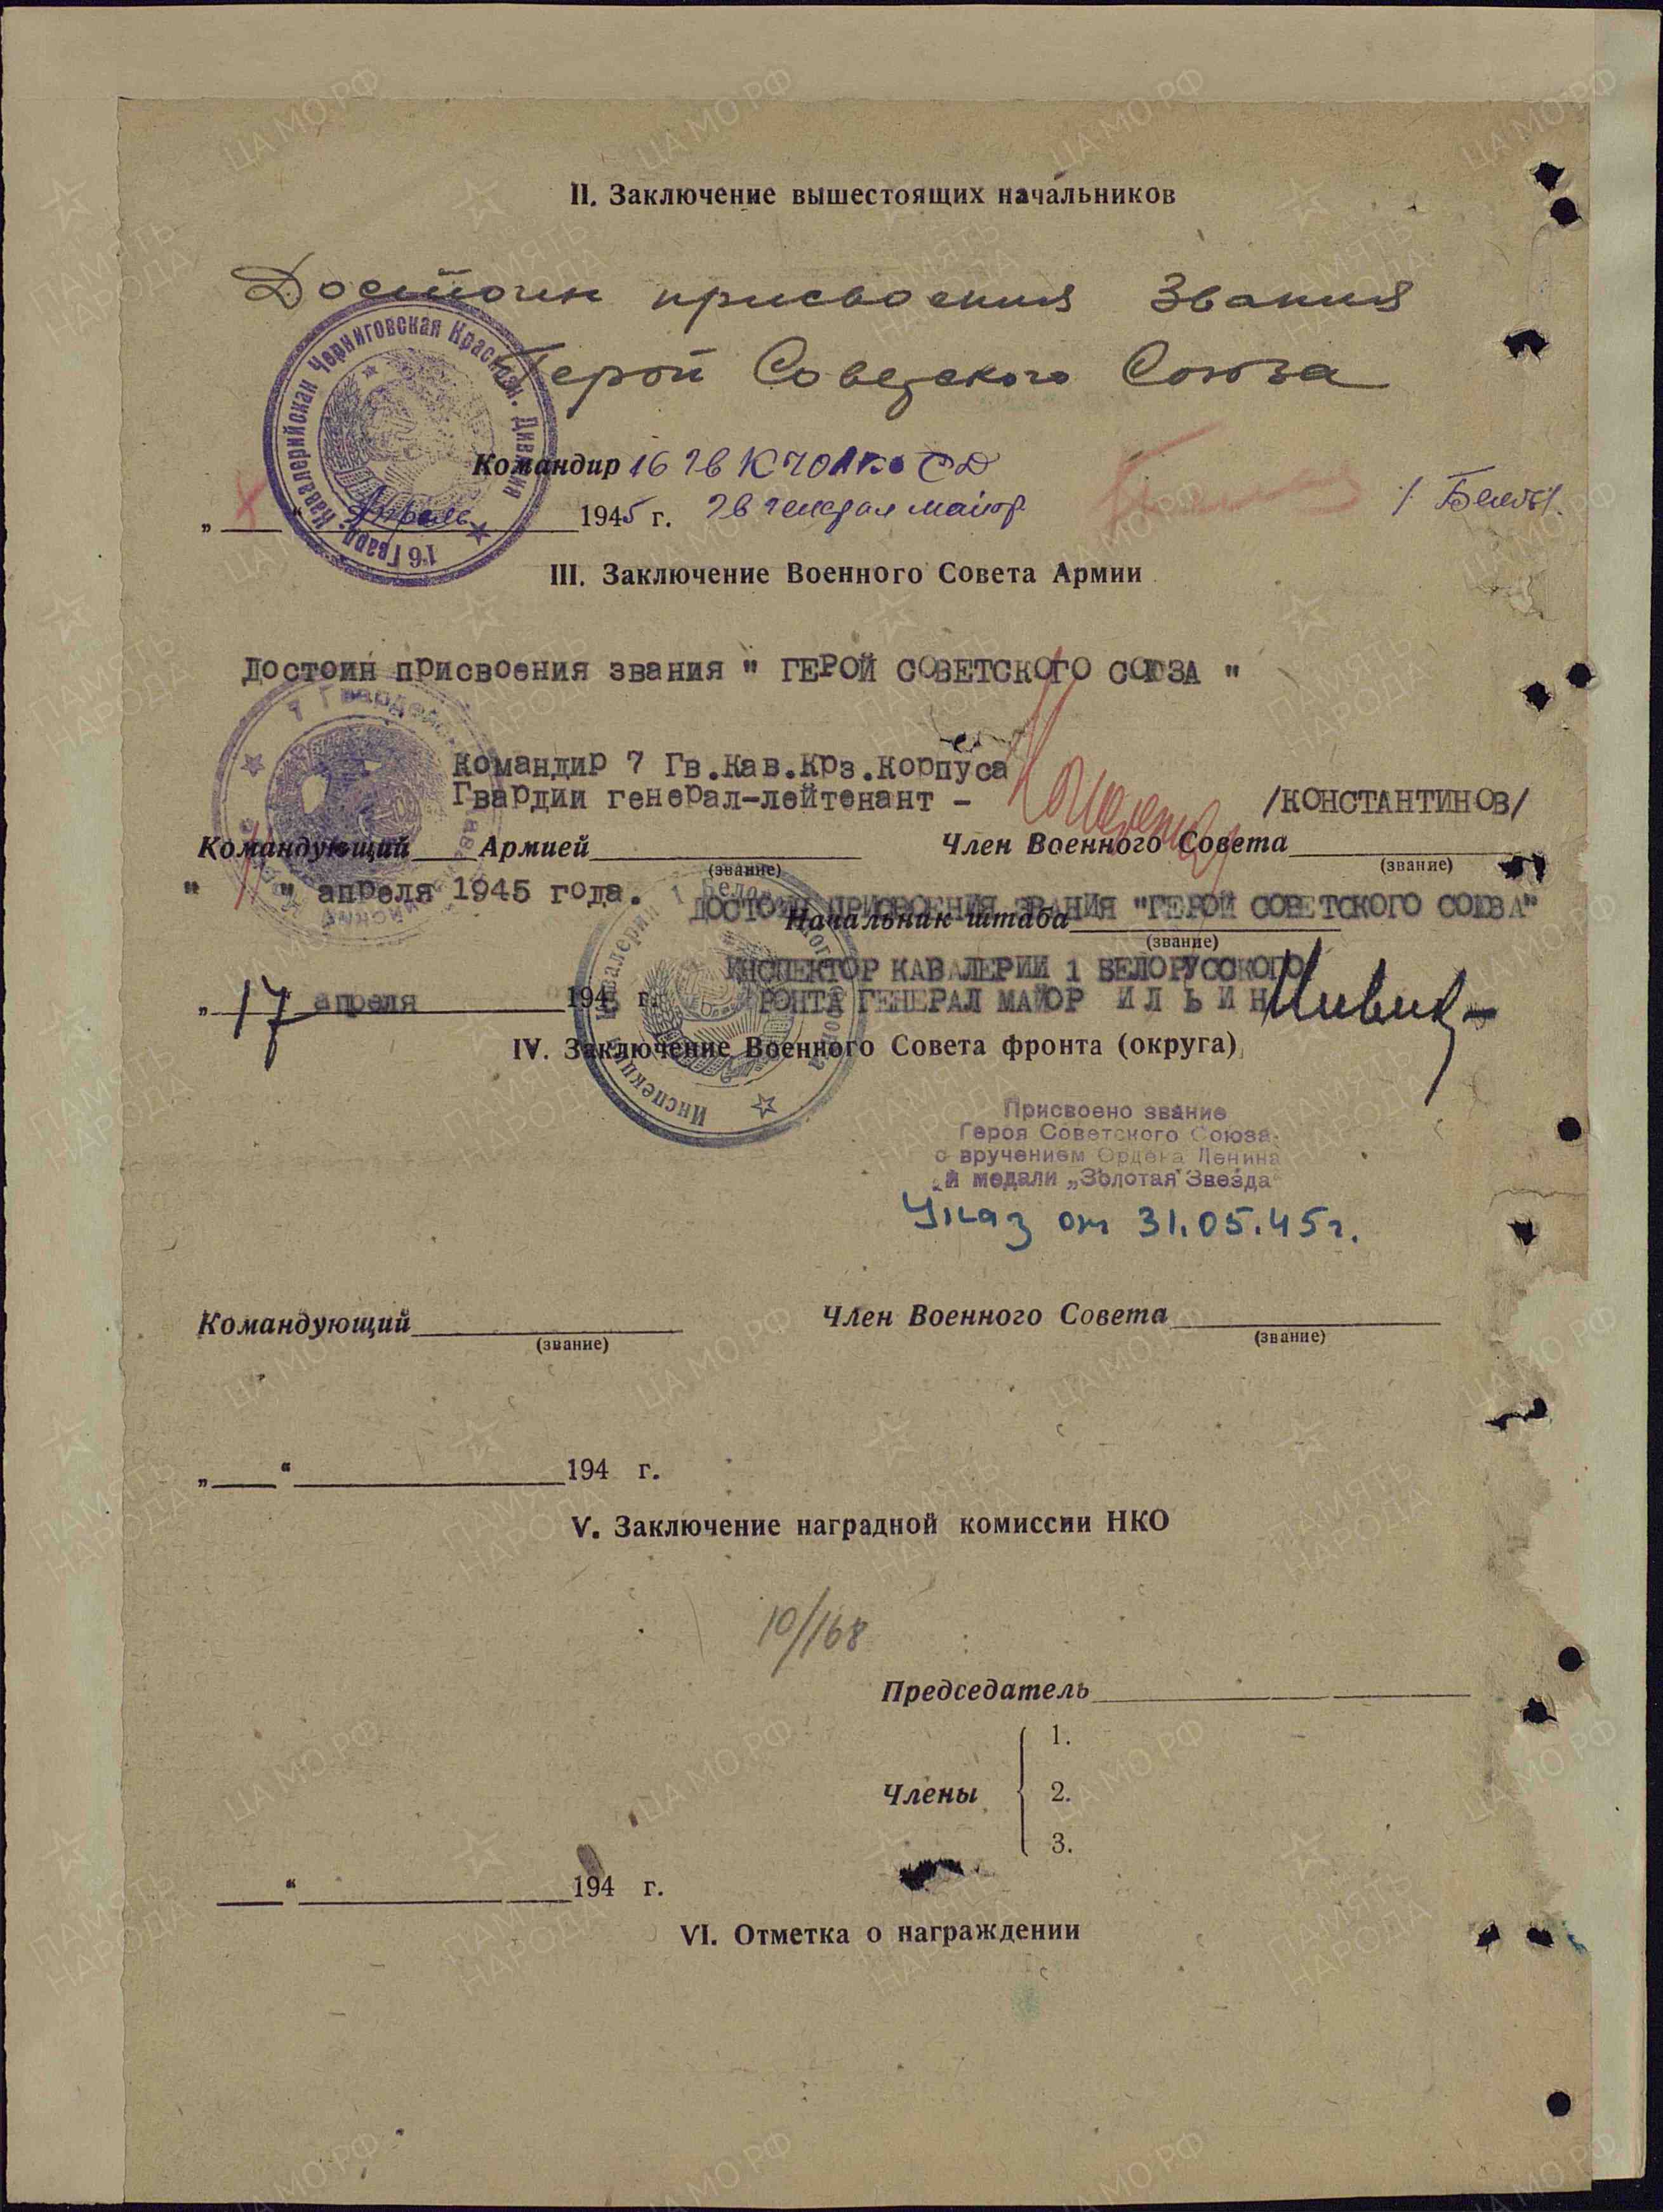 II. Заключение вышестоящих начальников
Достоин присвоения звания
Герой Советского Союза
Командир 16 гв К ЧОЛКо СД
„ “ Апрель 1945 г. гв генерал майор / Белов/.
16 Гвард. Кавалерийская Черниговская Краснозн. Дивизия
III. Заключение Военного Совета Армии
Достоин присвоения звания " ГЕРОЙ СОВЕТСКОГО СОЮЗА "
Командир 7 Гв.Кав.Крз.Корпуса
Гвардии генерал-лейтенант - /КОНСТАНТИНОВ/
Командующий Армией Член Военного Совета
(звание) (звание)
" " апреля 1945 года.
ДОСТОИН ПРИСВОЕНИЯ ЗВАНИЯ "ГЕРОЙ СОВЕТСКОГО СОЮЗА"
Начальник штаба
(звание)
ИНСПЕКТОР КАВАЛЕРИИ 1 БЕЛОРУССКОГО
„ 17 апреля 194 г. РОНТА ГЕНЕРАЛ МАЙОР ИЛЬИН
IV. Заключение Военного Совета фронта (округа)
Присвоено звание
Героя Советского Союза
с вручением Ордена Ленина
и медали „Золотая Звезда“
Указ от 31.05.45г.
Командующий Член Военного Совета
(звание) (звание)
„ “ 194 г.
V. Заключение наградной комиссии НКО
10/168
Председатель
1.
Члены 2.
3.
“ 194 г.
VI. Отметка о награждении